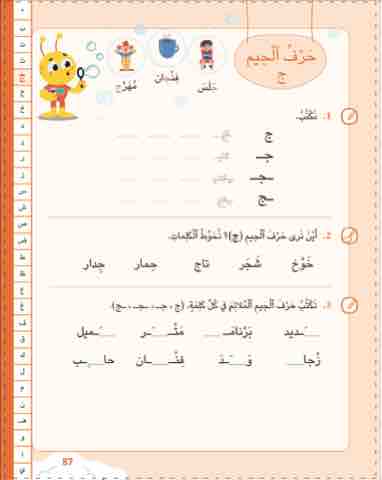 حَرْفُ ٱلْجيم
ج
جَلَسَ
فِنْجان
مُهَرِّج
1. نَكْتُبُ.
ج
جـ
ـجـ
ـج
2. أَيْنَ نَرى حَرْفَ ٱلْجيمِ (ج)؟ نُحَوِّطُ ٱلْكَلِماتِ.
خَوْخ شَجَر تاج حِمار جِدار
3. نَكْتُبُ حَرْفَ ٱلْجيمِ ٱلْمُلائِمَ في كُلِّ كَلِمَةٍ. (ج ، جـ ، ـجـ ، ـج).
___َـديد بَرْنامَـ___ مَتْـ___َـر ___َـميل
زُجا___ وَ___َـدَ فِنْـ___ـان حا___ِـب
87